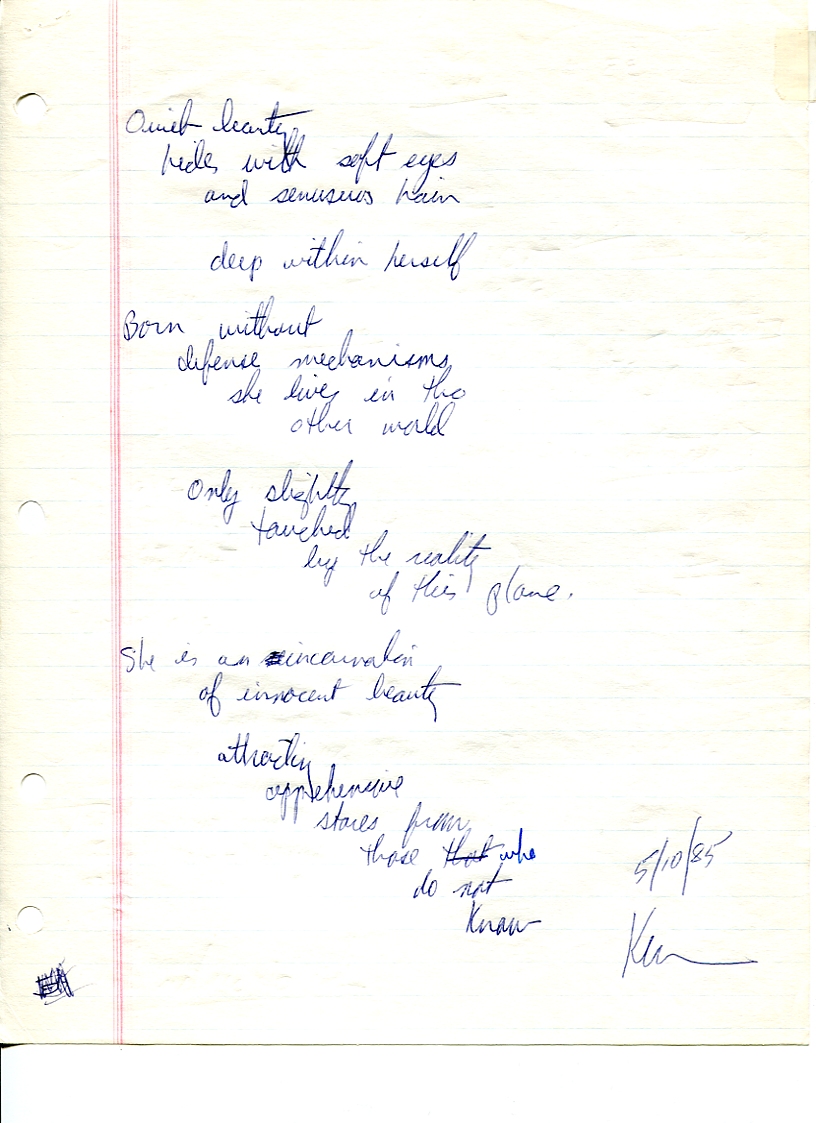 Quiet beauty
hides with soft eyes
and senusuos hair
deep within herself
Born without
defense mechanisms
she lives in the
other world
Only slightly
touched
by the reality
of this plane.
She is an incarnation
of innocent beauty
attracting
apprehensive
stares from
those that who
do not
know
5/10/85
Ken